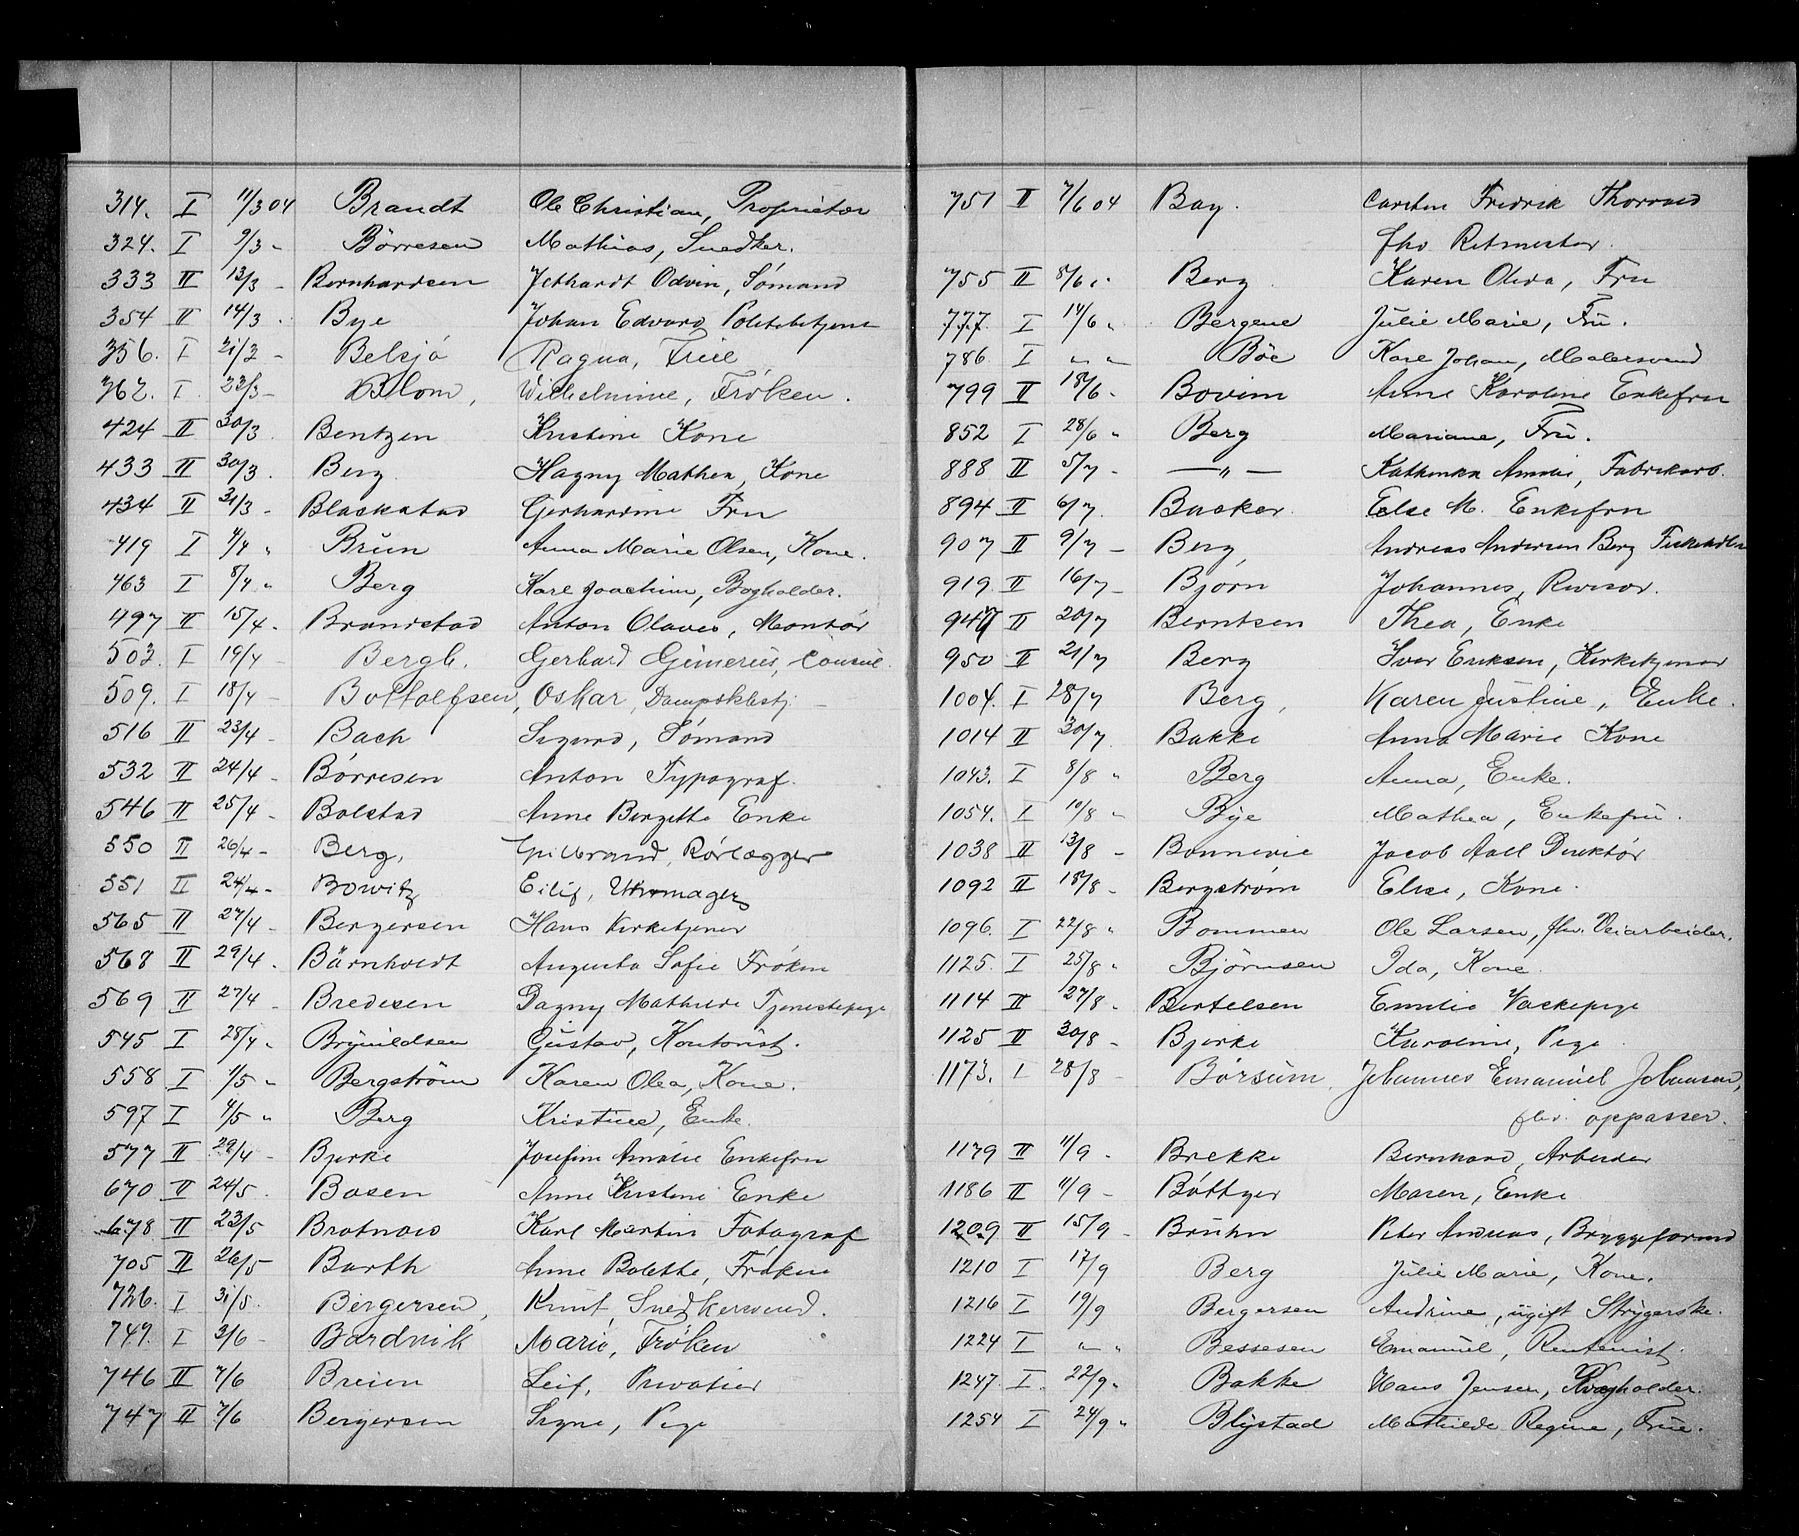 314. I 11/3 04 Brandt Ole Christian, Proprietær
324. I 9/3 - Børresen Mathias, Snedker.
333 II 13/3 - Bernhardsen Jethardt Odvin, Sømand
354 II 14/3 . Bye Johan Edvard Politibetjent
356. I 21/3 - Belsjø Ragna, Frue
362. I. 23/3 - Blom, Wilhelmine, Frøken.
424 II 30/3. Bentzen Kristine Kone
433 II 30/3. Berg. Hagny Mathea, Kone
434 II 31/3 - Blackstad Gerhardine Fru
419 I 4/4 " Brun Anna Marie Olsen, Kone.
463 I 8/4 " Berg Karl Joachim, Bogholder.
497 II 15/4. Brandstad Anton Olaves, Montør
503. I 19/4 - Bergh. Gerhard Gimerius, Consul.
509. I 18/4 - Bottolfsen, Oskar, Dampskbstj. -
516 II 23/4 - Bach Sigurd, Sømand
532 II 24/4 - Børresen Anton Typograf.
546 II 25/4 - Bolstad Anne Birgitte Enke
550 II 26/4 - Berg, Hildbrand, Rørlægger
551 II 24/4 - Bowitz Eilif, Uhrmager
565 II 27/4 - Bergersen Hans Kirketjener
568 II 29/4 . Bärnholdt Augusta Sofie Frøken
569 II 27/4 - Bredesen Dagny Mathilde Tjenestepige
545 I 28/4 " Brynildsen Gustav, Kontorist.
558. I 1/5 " Bergstrøm Karen Olea, Kone.
597 I 4/5 " Berg Kristine, Enke.
577 II 29/4 - Bjerke Josefine Amalie Enkefru
670 II 24/5. Bosen Anne Kristine Enke
678 II 23/5 Bratnow Karl Martin Fotograf
705 II 26/5 Barth Anne Bolette, Frøken
726. I 31/5. Bergersen, Knut, Snedkersvend.
749. I 3/6 - Bardvik Marie, Frøken
746 II 7/6 Breien Leif, Privatier
747 II 7/6 Bergersen Signe, Pige
751 II 7/6 04 Bay. Carsten Fredrik Thorvald
fhv Ritmester.
755 II 8/6 . Berg Karen Oliva, Fru
777. I 14/6 " Bergene Julie Marie, Fru.
786. I " " Bøe Karl Johan, Malersvend
799 II 18/6. Bovim Anne Karoline Enkefru
852 I 28/6 " Berg Mariane, Fru.
888 II 5/7 - — " — Kathinka Amalie, Fabrikarb.
894 II 6/7. Basker Else M. Enkefru
907 II 9/7 - Berg, Andreas Andersen Berg
919 II 16/7 - Bjørn Johannes, Revisor.
947 II 20/7 Berntsen Thea, Enke
950 II 21/7 Berg Iver Eriksen, Kirketjener
1004. I 28/7 Berg, Karen Justine, Enke.
1014 II 30/7 Bakke Anna Marie Kone
1043. I 8/8 " Berg Anna, Enke.
1054. I 10/8 " Bye Mathea, Enkefru.
1038 II 13/8 - Bonnevie Jacob Aall Direktør
1092 II 18/8 - Bergstrøm Elise, Kone.
1096. I 22/8 " Bommen Ole Larsen, fhv. Veiarbeider.
1125. I 25/8 " Bjørnsen Ida, Kone.
1114 II 27/8 - Bertelsen Emilie Vaskepige
1125 II 30/8 - Bjerke Karoline, Pige
1173. I 28/8 - Børsum, Johannes Emanuel Johansen,
fhv. oppasser.
1179 II 11/9 . Brekke Bernhard, Arbeider
1186 II 11/9 - Bøttger Maren, Enke
1209 II 15/9 - Bruhn Peter Andreas, Bryggeformd
1210 I 17/9 Berg Julie Marie, Kone.
1216 I 19/9 Bergersen Andrine, ugift Strygerske.
1224 I " " Bessesen Emanuel, Rentenist.
1247. I. 22/9 " Bakke Hans Jensen, Kvægholder.
1254 I 24/9 " Blystad Mathilde Regine, Frue.